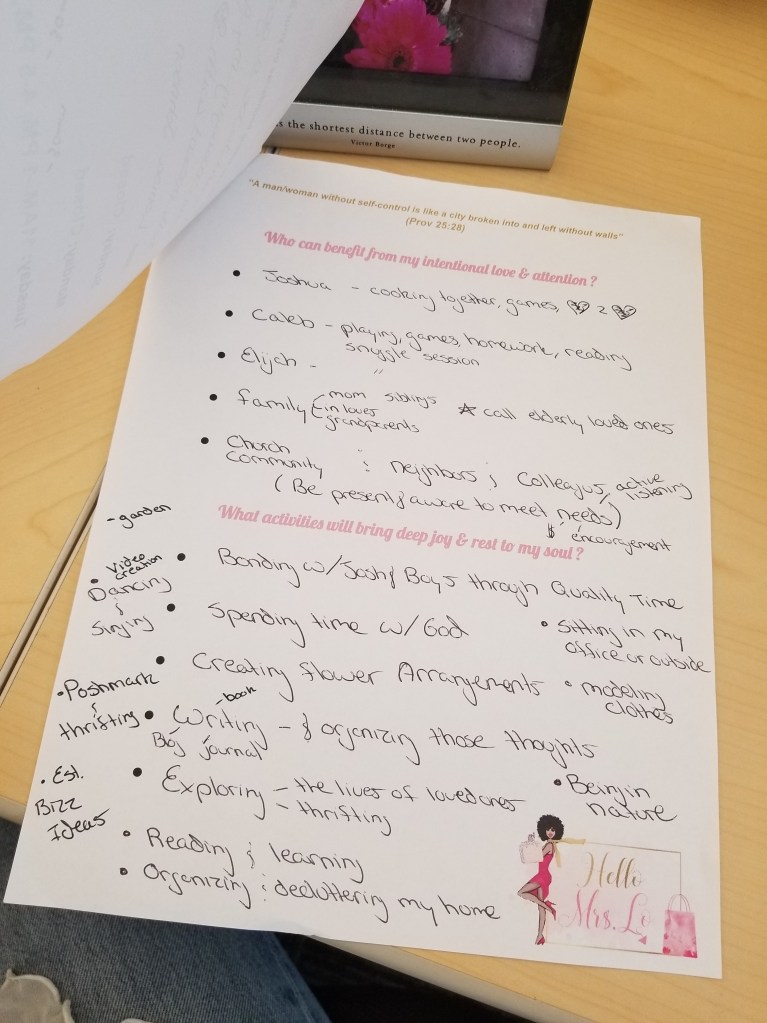 s the shortest distance between two people.
Victor Borge
"A man/woman without self-control is like a city broken into and left without walls"
(Prov 25:28)
Who can benefit from my intentional love & attention?
• Joshua - cooking together, games, 2
• Caleb - playing, games, homework, reading
snuggle session
• Elijah - "
• family mom siblings ☆ call elderly loved ones
in loves
grandparents
• Church
community : neighbors ; Colleagues, active
listening
(Be present & aware to meet needs)
$ encouragement
What activities will bring deep joy & rest to my soul?
- garden
• Video
creation
Dancing
&
Singing
• Poshmark
&
thrifting
• Est.
Bizz
Ideas
• Bonding w/ Josh & Boys through Quality Time
• Spending time w/ God
• Sitting in my
office or outside
• Creating flower Arrangements
• modeling
clothes
- book
• Writing - & organizing those thoughts
Blog journal
• Exploring - the lives of loved ones
- thrifting
• Being in
nature
• Reading & learning
• Organizing : decluttering my home
Hello
Mrs. Lo